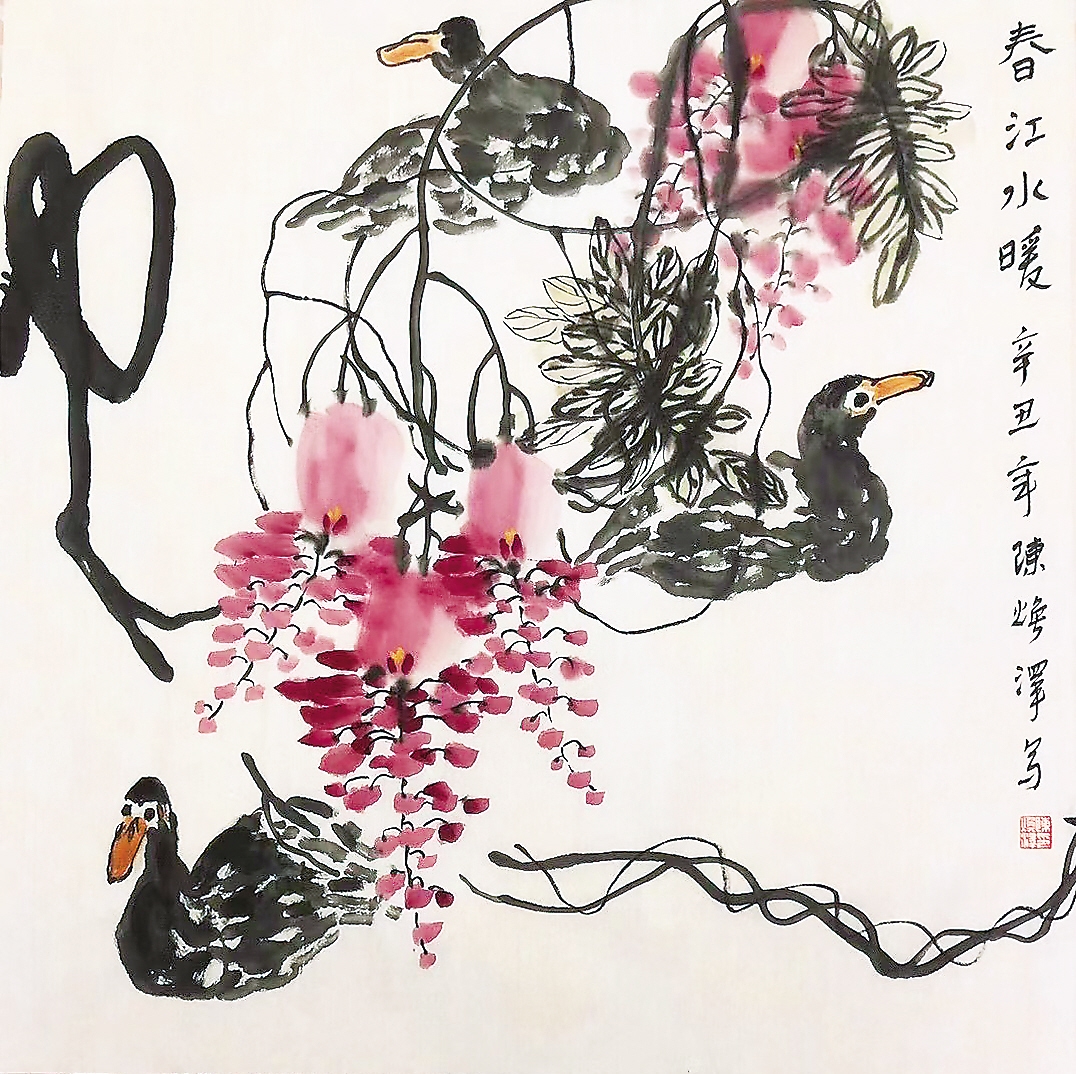 春江水暖 辛丑年 陳煥澤写